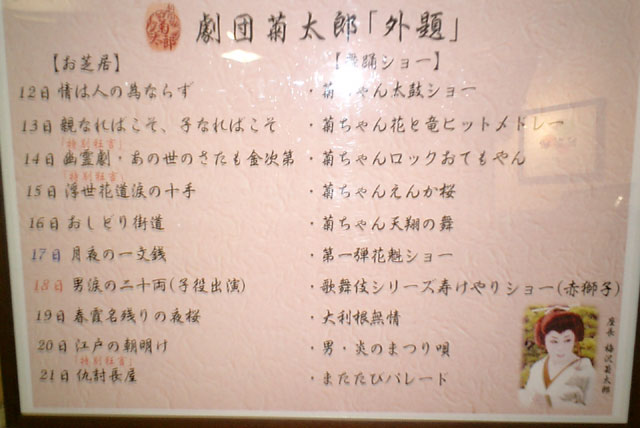 劇団菊太郎「外題」
【お芝居】 踊ショー】
12日 情は人の為ならず ・菊ちゃん太鼓ショー
13日 親なればこそ、子なればこそ ・菊ちゃん花と竜ヒットメドレー
「特別狂言」
14日 幽霊劇・あの世のさたも金次第 ・菊ちゃんロックおてもやん
「特別狂言」
15日 浮世花道涙の十手 ・菊ちゃんえんか桜
16日 おしどり街道 ・菊ちゃん天翔の舞
17日 月夜の一文銭 ・第一弾花魁ショー
18日 男涙の二十両(子役出演) ・歌舞伎シリーズ寿けやりショー(赤獅子)
19日 春霞名残りの夜桜 ・大利根無情
20日 江戸の朝明け ・男・炎のまつり唄
「特別狂言」
21日 仇討長屋 ・またたびパレード
座長 梅沢菊太郎